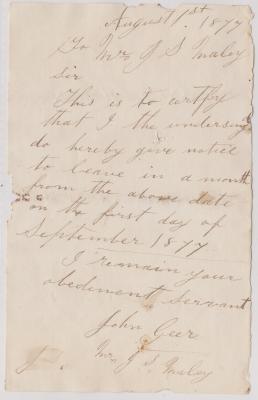 August 1st. 1877
To Mr J S Maley
Sir
This is to certfy
that I the undersind
do hereby give notice
to leave in a month
from the above date
on the first day of
September 1877
I remain your
obedement servant
John Geer
Mr J S. Maley